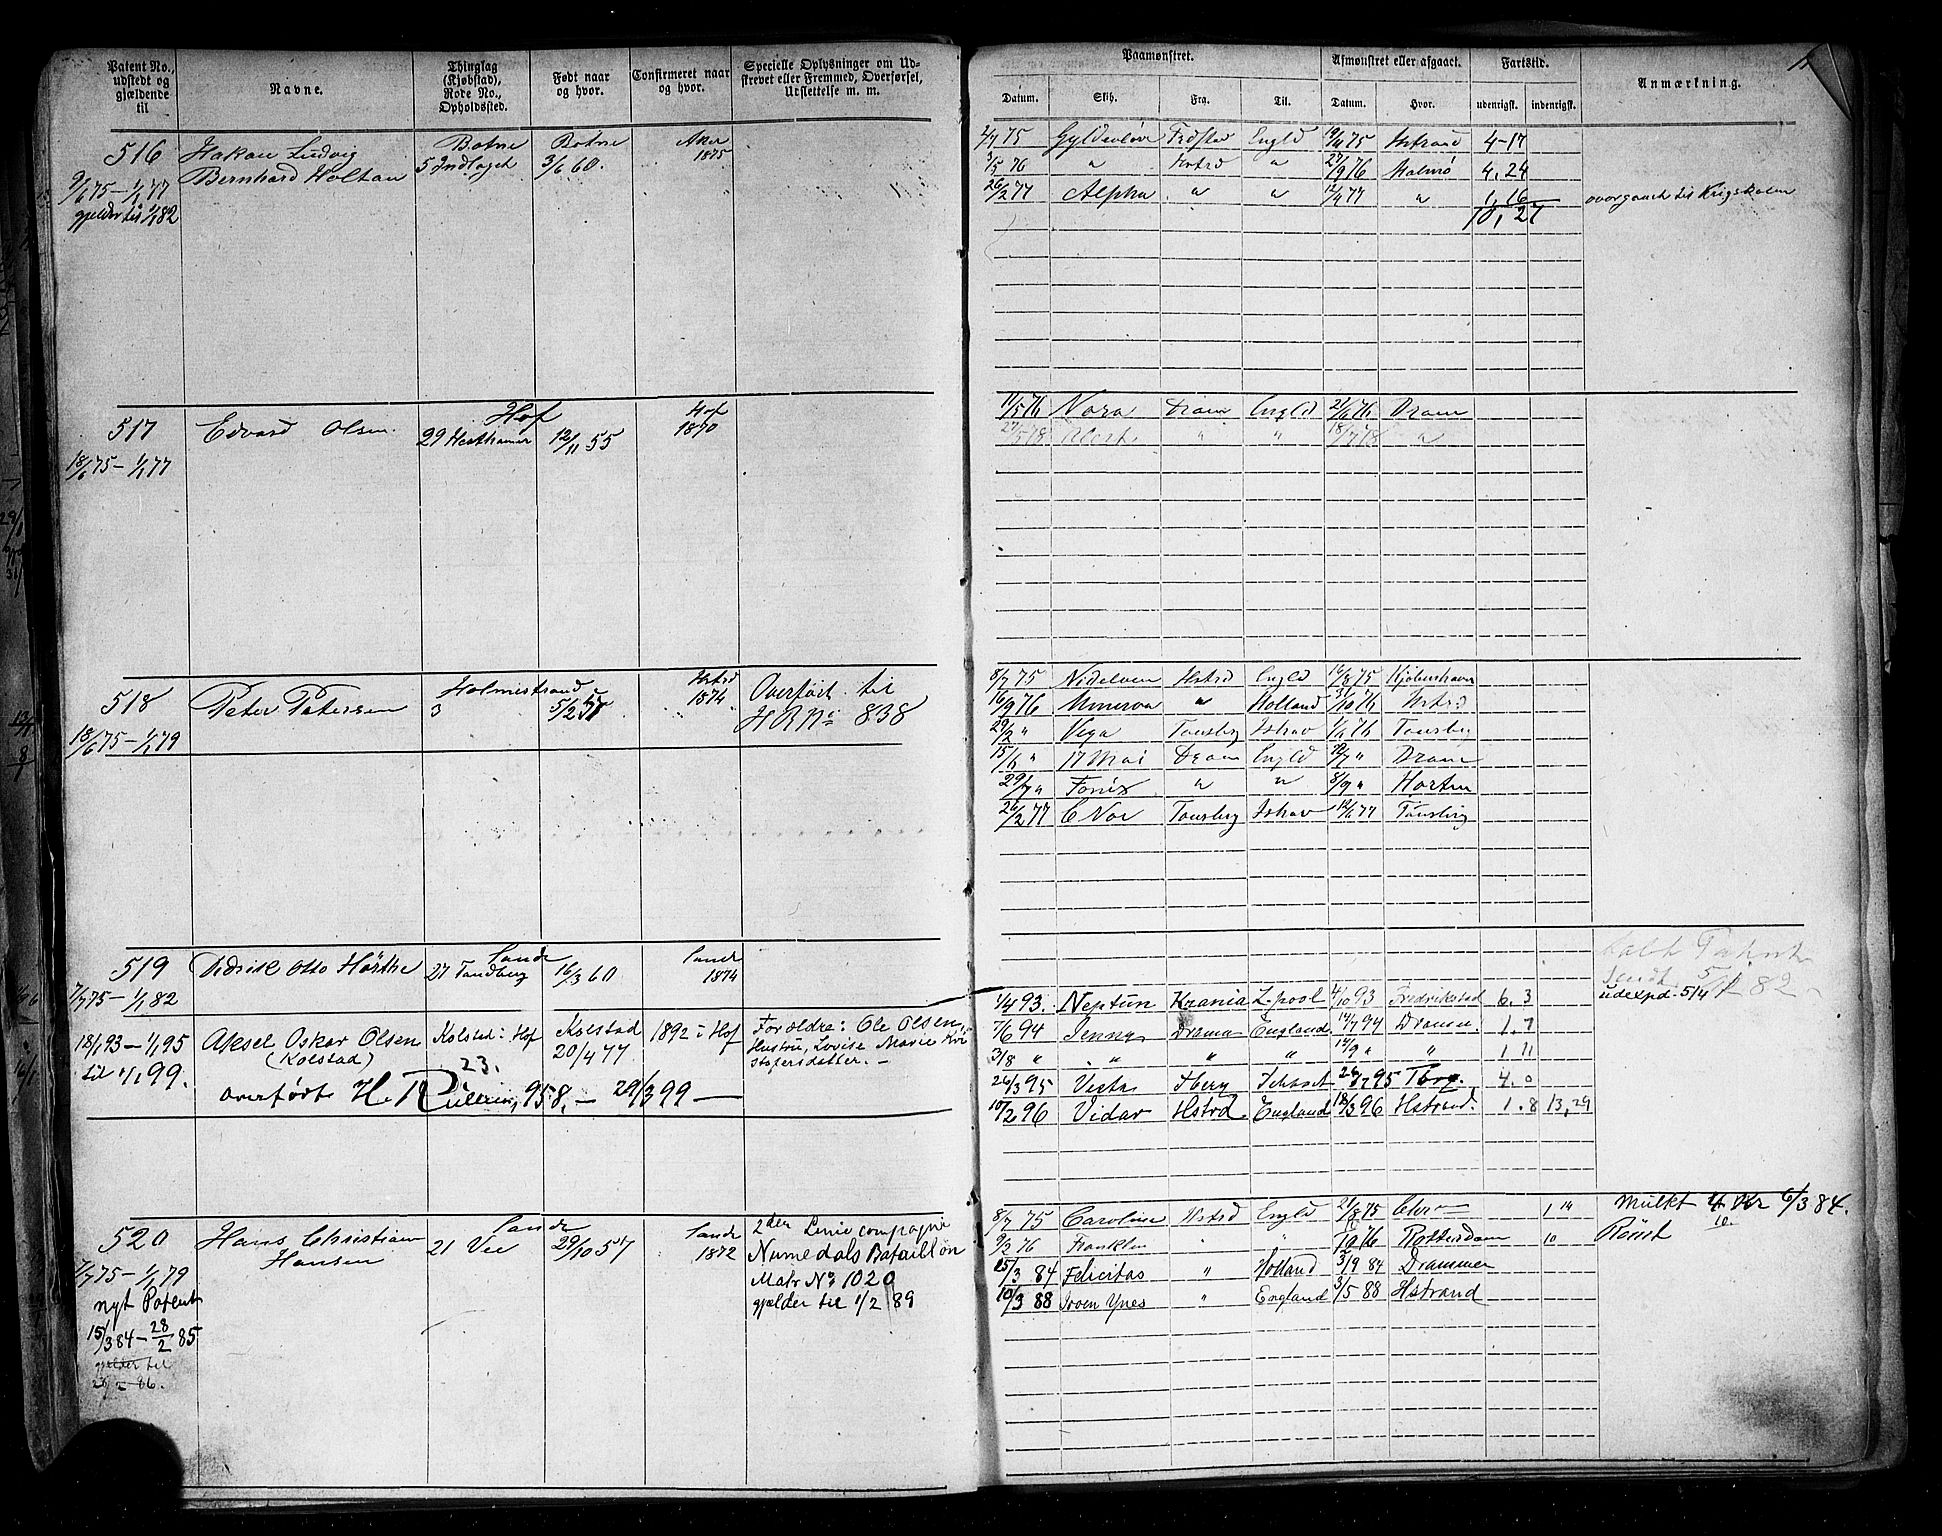 Patent No., udstedt og gjældende til
Navne.
Thinglag (Kjøbstad), Rode No., Opholdssted.
Født naar og hvor.
Confirmeret naar og hvor.
Specielle Oplysninger om Udskrevet eller Fremmed, Overførsel, Udslettelse m. m.
Paamønstret.
Afmønstret eller afgaaet.
Fartstid.
Anmærkning.
Datum. Skib. Fra. Til. Datum. Hvor. udenrigsk. indenrigsk.
516 Hakon Ludvig Botne Botne Aker
Bernhard Holtan 5 Indlaget 3/6 60. 1875
9/6 75 – 1/1 77
gjelder til 1/1 82
2/7 75 Gyldenløve Frdstad Engld 19/11 75 Hstrand 4-17
3/5 76 " Hstrd " 27/9 76 Malmø 4. 24
26/2 77 Alpha " " 12/4 77 " 1, 16 overgaaet til Krigskolen
10, 27
517 Edvard Olsen Hof Hof
29 12/11 55 1870
18/6 75 – 1/1 77
11/5 76 Nora Dram Engld 21/6 76 Dram
27/5 78 " " 18/7 78 "
518 Peter Petersen Holmestrand Hstrd Overført til
3 1874 H R No 838
18/6 75 – 1/1 79
8/7 75 Nidelven Hstrd Engld 16/8 75 Kjøbenhavn
16/9 76 Minerva " Holland 31/10 76 Hstrd
29/2 " Vega Tønsberg Ishav 1/6 76 Tønsberg
15/6 " 17 Mai Dram Engld /7 " Dram
29/7 " Fønix " " 8/9 " Horten
26/2 77 C Nor Tønsberg Ishav 12/6 77 Tønsberg
519 Didrik Otto Hørthe Sande Sande
27 Tandberg 16/3 60 1874
7/7 75 – 1/1 82
18/1 93 – 1/1 95 Aksel Oskar Olsen Kolstad i Hof Kolstad 1892 i Hof Forældre: Ole Olsen,
til 1/1 99. (Kolstad) 23. 20/4 77 Hustru, Lovise Marie Kri
stofersdatter. –
overførte H. Rullerne, 958, – 29/3 99 –
1/4 93. Neptun Krania L-pool 4/10 93 Fredrikstad 6. 3
7/6 94 Jenny Dramn England. 14/7 94 Dramn. 1. 7
3/8 " " " " 14/9 " " 1 11
26/3 95 Vesta Tberg Ishavet 26/7 95 Tbrg. 4. 0
10/2 96 Vidar Hstrd. England 18/3 96 Hstrand. 1. 8 13, 29
520 Hans Christian Sande Sande 2den Linie compagni
Hansen 21 Vee 29/10 57 1872 Numedals Bataillon
7/7 75 – 1/1 79 Matr No 1020
nyt Patent gjælder til 1/2 89
15/3 84 – 28/2 85
gjælder til
8/7 75 Caroline Hstrd Engld 21/8 75 Chr– 1 14 Mulkt 4 Kr 6/3 84.
9/2 76 Franklin " " Rotterdam 10
25/3 84 Felicitas " Holland 3/9 84 Drammen
10/3 88 Sven Ynes " England 3/5 88 Hstrand